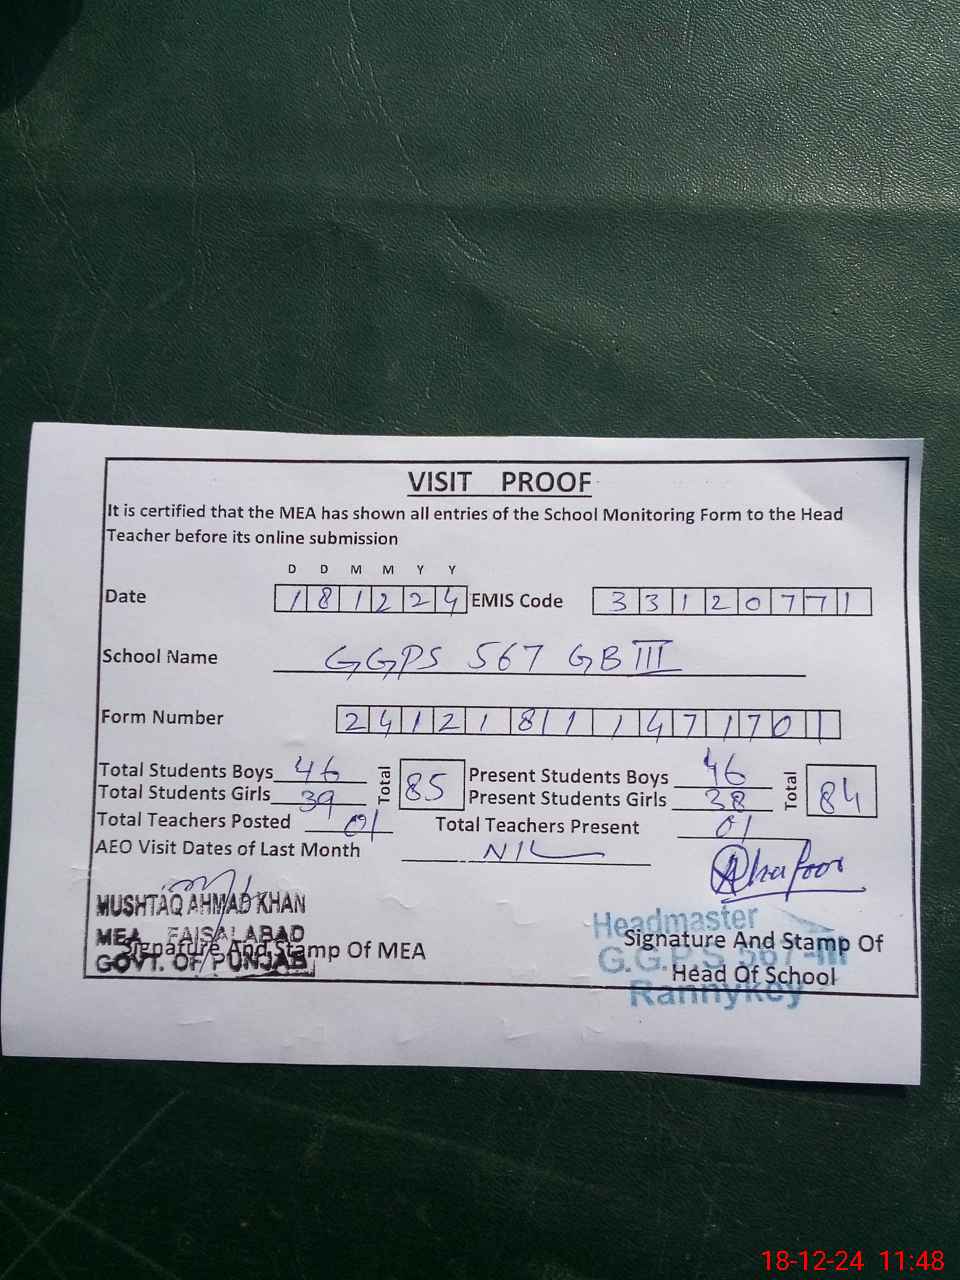 VISIT PROOF
It is certified that the MEA has shown all entries of the School Monitoring Form to the Head
Teacher before its online submission
D D M M Y Y
Date 181224 EMIS Code 33120771
School Name GGPS 567 GB III
Form Number 241218111471701
Total Students Boys 46 Total 85 Present Students Boys 46 Total 84
Total Students Girls 39 Present Students Girls 38
Total Teachers Posted 01 Total Teachers Present 01
AEO Visit Dates of Last Month NIL
MUSHTAQ AHMAD KHAN
MEA FAISALABAD
GOVT. OF PUNJAB
Signature And Stamp Of MEA
Headmaster
G.G.P.S 567-III
Signature And Stamp Of
Head Of School
18-12-24 11:48